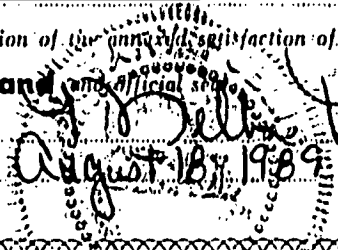 ion of the annexed satisfaction of
and and official seal
August 18, 1989